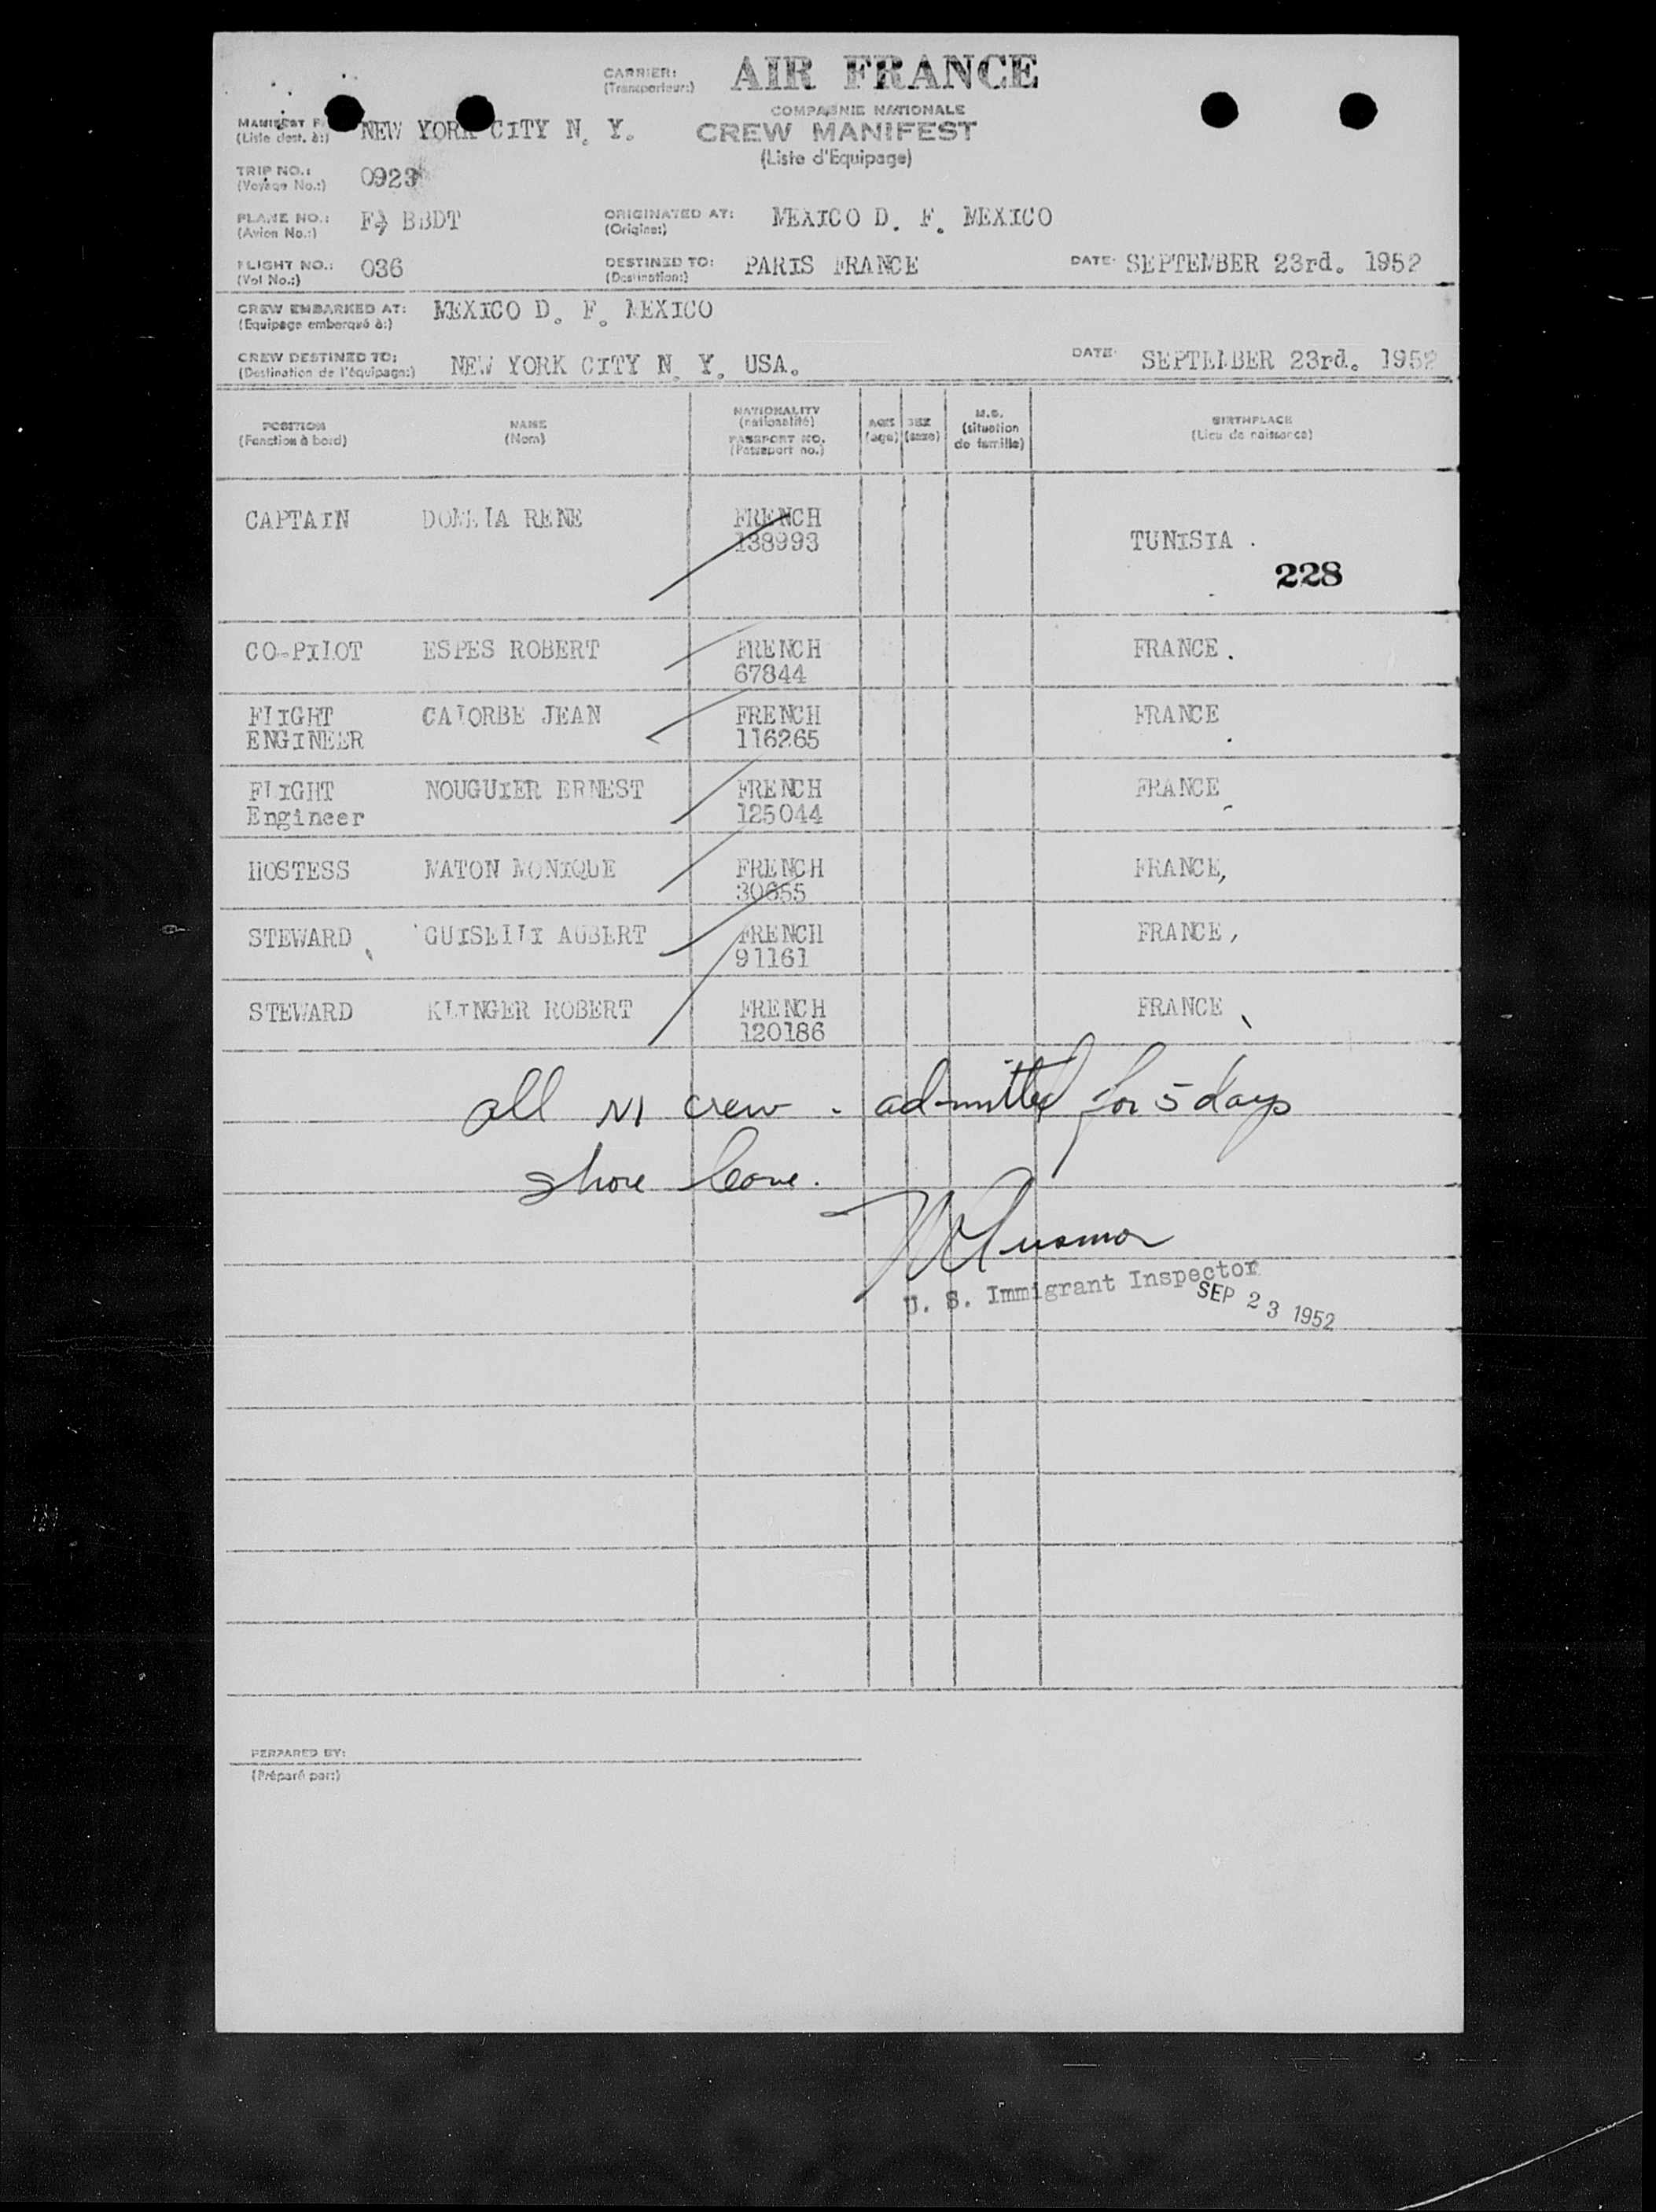 CARRIER: AIR FRANCE
(Transporteur:)
COMPAGNIE NATIONALE
MANIFEST NEW YORK CITY N. Y. CREW MANIFEST
(Liste dest. à:)
(Liste d'Equipage)
TRIP NO.: 0923
(Voyage No.:)
PLANE NO.: BBDT ORIGINATED AT: MEXICO D. F. MEXICO
(Avion No.:) (Origine:)
FLIGHT NO.: 036 DESTINED TO: PARIS FRANCE DATE: SEPTEMBER 23rd. 1952
(Vol No.:) (Destination:)
CREW EMBARKED AT: MEXICO D. F. MEXICO
(Equipage embarqué à:)
CREW DESTINED TO: NEW YORK CITY N. Y. USA. DATE: SEPTEMBER 23rd. 1952
(Destination de l'équipage:)
POSITION NAME NATIONALITY AGE SEX M.S. BIRTHPLACE
(Fonction à bord) (Nom) (nationalité) (age) (sexe) (situation de famille) (Lieu de naissance)
PASSPORT NO.
(Passeport no.)
CAPTAIN RENE FRENCH
138993 TUNISIA .
228
CO-PILOT ESPES ROBERT FRENCH FRANCE .
67844
FLIGHT CALORBE JEAN FRENCH FRANCE
ENGINEER 116265 .
FLIGHT NOUGUIER ERNEST FRENCH FRANCE
Engineer 125044
HOSTESS MATON MONIQUE FRENCH FRANCE,
30655
STEWARD GUISELLI AUBERT FRENCH FRANCE,
91161
STEWARD KLINGER ROBERT FRENCH FRANCE
120186
all NI crew - admitted for 5 days
shore leave.
U. S. Immigrant Inspector
SEP 23 1952
PERPARED BY:
(Préparé par:)